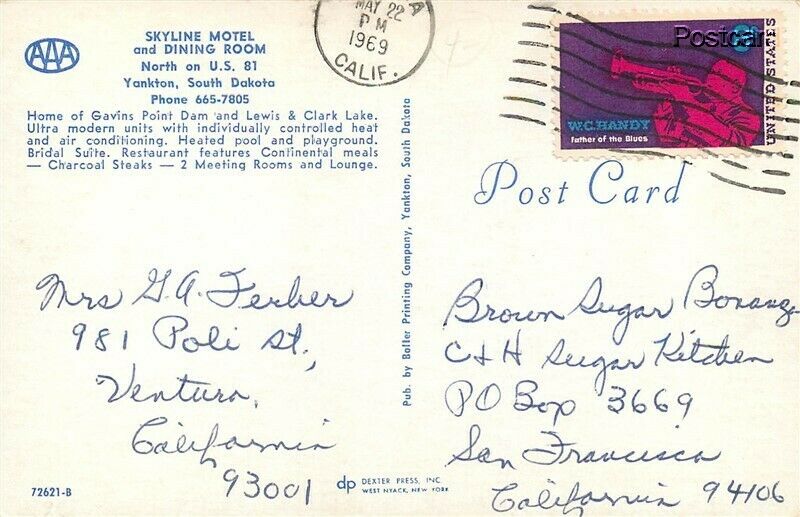 AAA
SKYLINE MOTEL
and DINING ROOM
North on U.S. 81
Yankton, South Dakota
Phone 665-7805
Home of Gavins Point Dam and Lewis & Clark Lake.
Ultra modern units with individually controlled heat
and air conditioning. Heated pool and playground.
Bridal Suite. Restaurant features Continental meals
— Charcoal Steaks — 2 Meeting Rooms and Lounge.
MAY 22
PM
1969
CALIF.
W.C. HANDY
Father of the Blues
UNITED STATES
Post Card
Pub. by Boller Printing Company, Yankton, South Dakota
Mrs G. A. Ferber
981 Poli St.,
Ventura,
California
93001
Brown Sugar Bonanza
C & H Sugar Kitchen
PO Box 3669
San Francisco
California 94106
72621-B
dp DEXTER PRESS, INC.
WEST NYACK, NEW YORK